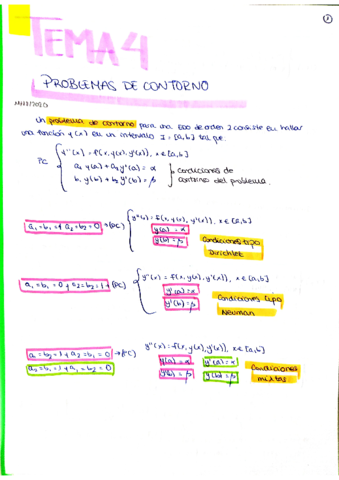 TEMA 4
PROBLEMAS DE CONTORNO
Un problema de contorno para una EDO de orden 2 consiste en hallar
una función y(x) en un intervalo I = [a,b] tal que:
PC { y''(x) = f(x, y(x), y'(x)), x ∈ [a,b]
a₁ y(a) + a₂ y'(a) = α
b₁ y(b) + b₂ y'(b) = β
} condiciones de
contorno del problema.
a₁ = b₁ = 1 y a₂ = b₂ = 0 → (PC) { y''(x) = f(x, y(x), y'(x)), x ∈ [a,b]
y(a) = α
y(b) = β
Condiciones tipo
Dirichlet
a₁ = b₁ = 0 y a₂ = b₂ = 1 → (PC) { y''(x) = f(x, y(x), y'(x)), x ∈ [a,b]
y'(a) = α
y'(b) = β
Condiciones tipo
Neuman
a₁ = b₂ = 1 y a₂ = b₁ = 0 → (PC) y''(x) = f(x, y(x), y'(x)), x ∈ [a,b]
a₂ = b₁ = 1 y a₁ = b₂ = 0
y(a) = α y'(a) = α
y'(b) = β y(b) = β
Condiciones
mixtas